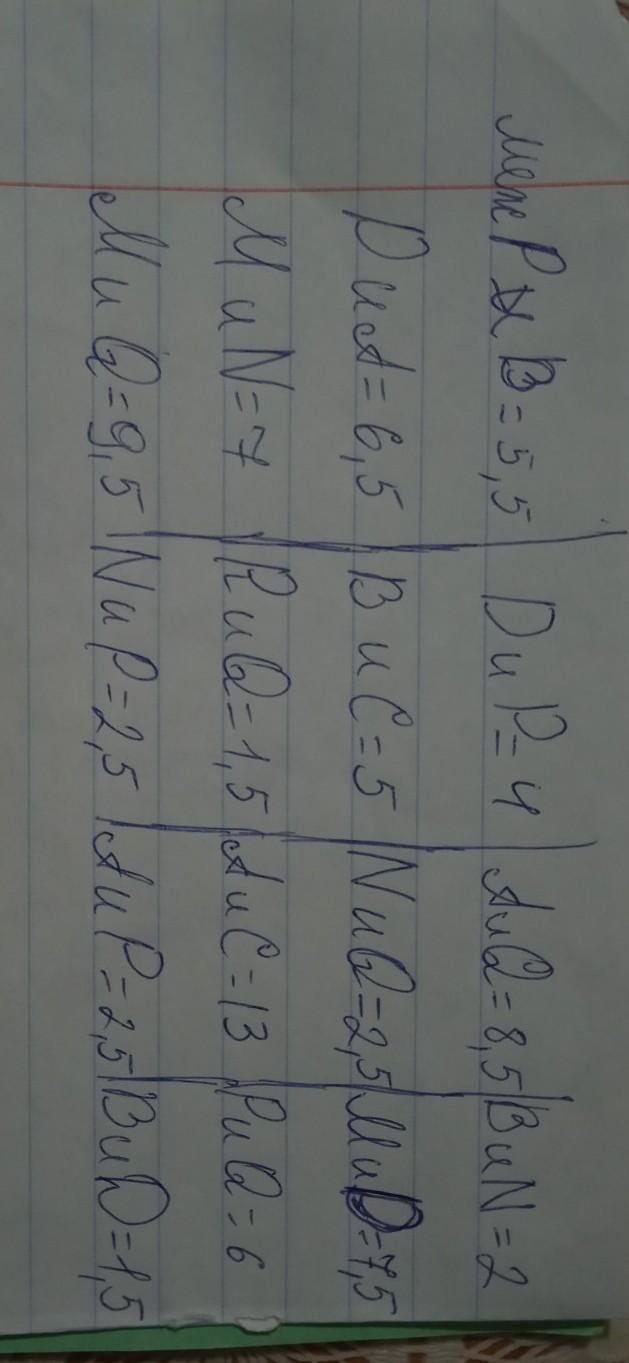 меж P и B = 5,5 | D и P = 4 | A и Q = 8,5 | B и N = 2
D и A = 6,5 | B и C = 5 | N и Q = 2,5 | M и D = 7,5
M и N = 7 | R и Q = 1,5 | A и C = 13 | P и Q = 6
M и Q = 9,5 | N и P = 2,5 | A и P = 2,5 | B и D = 1,5